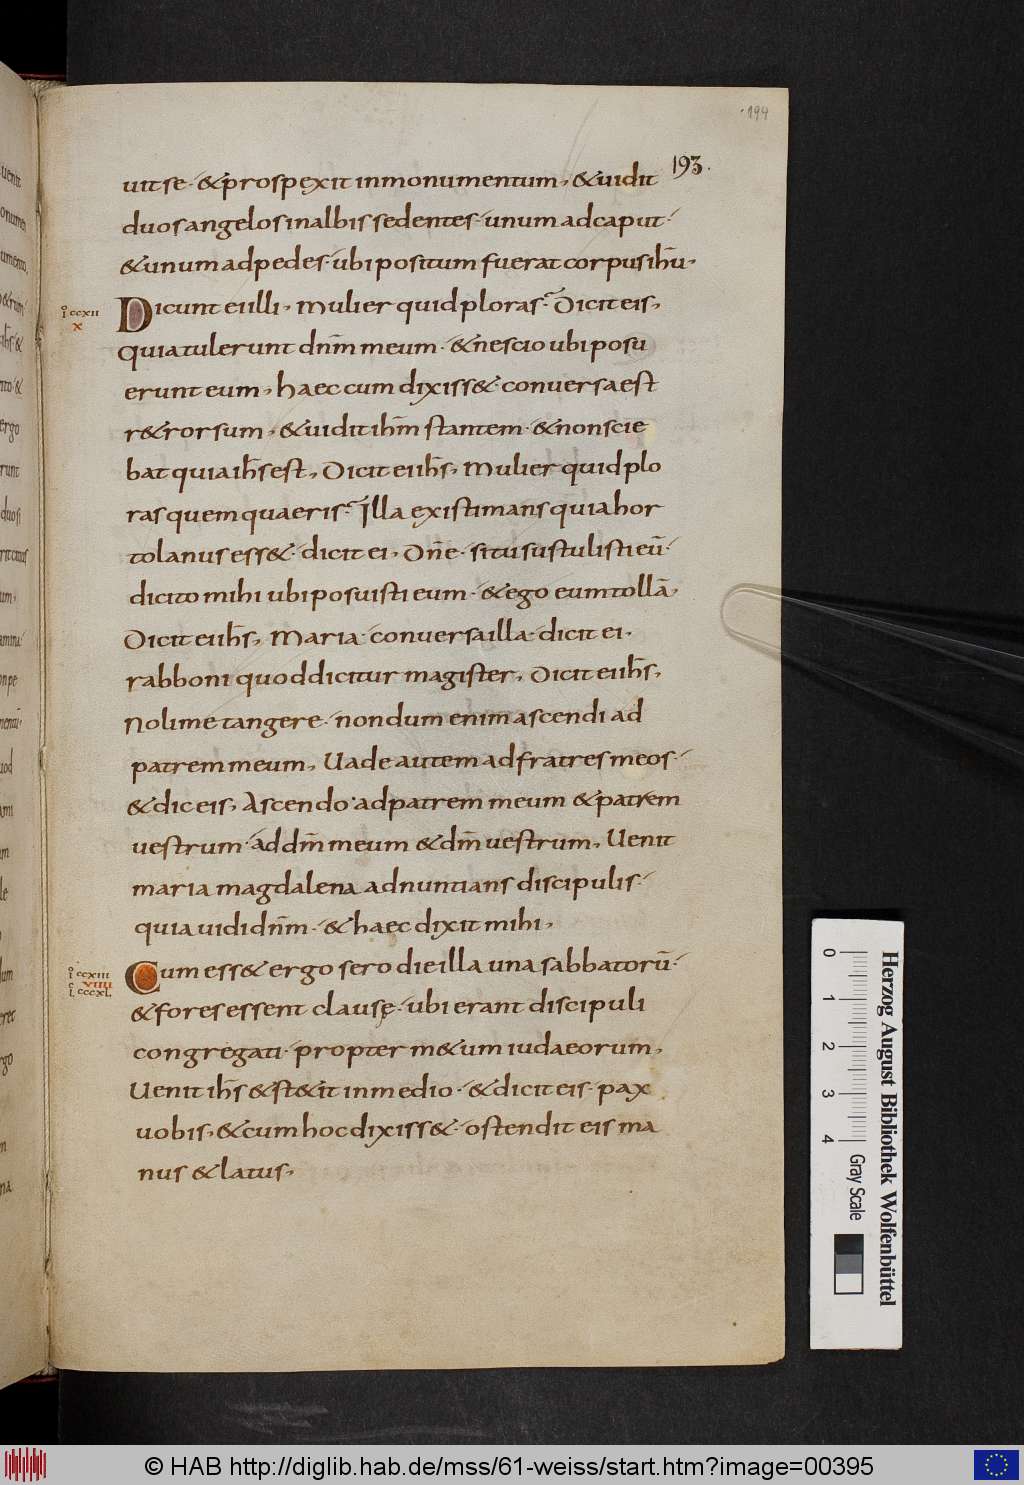 194
193.
uit se· & prospexit in monumentum, & uidit
duos angelos in albis sedentes· unum ad caput·
& unum ad pedes· ubi positum fuerat corpus ih̄u·
Dicunt ei illi, Mulier quid ploras? Dicit eis,
Quia tulerunt dn̄m meum· & nescio ubi posu
erunt eum, haec cum dixiss& conuersa est
r&rorsum, & uidit ih̄m stantem· & non scie
bat quia ih̄s est, Dicit ei ih̄s, Mulier quid plo
ras quem quaeris? Illa existimans quia hor
tolanus ess& dicit ei, Dn̄e· si tu sustulisti eū·
dicito mihi ubi posuisti eum· & ego eum tollā,
Dicit ei ih̄s, Maria· conuersa illa· dicit ei·
rabboni quod dicitur magister, Dicit ei ih̄s,
Noli me tangere· nondum enim ascendi ad
patrem meum, Uade autem ad fratres meos·
& dic eis, Ascendo ad patrem meum & patrem
uestrum· ad dm̄ meum & dm̄ uestrum, Uenit
maria magdalena adnuntians discipulis·
quia uidi dn̄m· & haec dixit mihi,
Cum ess& ergo sero die illa una sabbatorū·
& fores essent clausę· ubi erant discipuli
congregati· propter m&um iudaeorum,
Uenit ih̄s & st&it in medio· & dicit eis· pax
uobis, & cum hoc dixiss&· ostendit eis ma
nus & latus,
i ccxii
x
i ccxiii
viiii
l. cccxl.
0 1 2 3 4
Gray Scale
Herzog August Bibliothek Wolfenbüttel
© HAB http://diglib.hab.de/mss/61-weiss/start.htm?image=00395